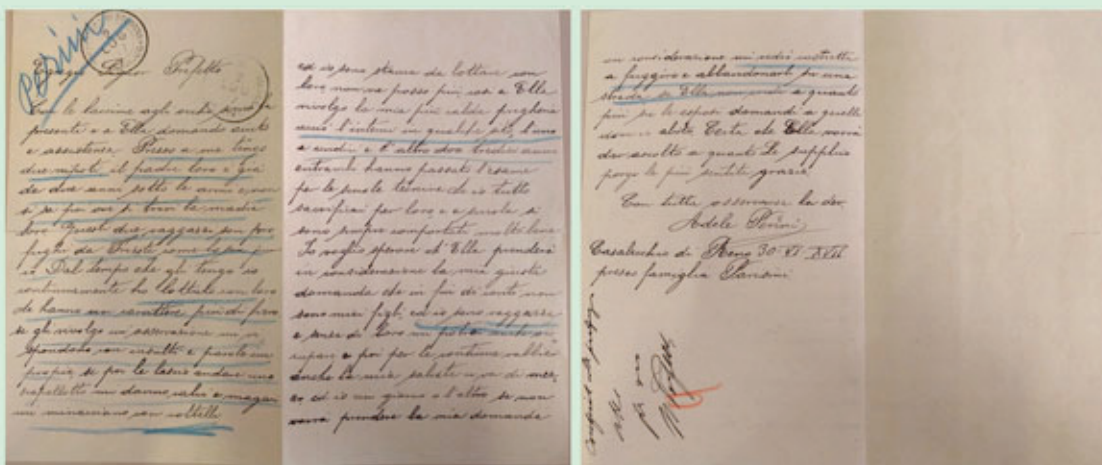 Perini
Egregio Signor Prefetto
Con le lacrime agli occhi sono a
presente e a Ella domando aiuto
e assistenza. Presso a me tengo
due nipoti il padre loro e già
da due anni sotto le armi e non
si sa poi ove si trovi la madre
loro. Questi due ragazzi son pro
fughi da Trieste come lo sono
io. Dal tempo che gli tengo io
continuamente ho lottato con loro
che hanno un carattere
se gli rivolgo un osservazione mi ri
spondono con insulti e parole im
proprie, se poi le lascio andare uno
scapellotto mi danno calci e magari
mi minacciano con coltelli
ed io sono stanca da lottare con
loro non ne posso più, ora a Ella
rivolgo la mia più calda preghiera
acciò l'interni in qualche sito, l'uno
a undici e l'altro dodici tredici anni
entrambi hanno passato l'esame
per le scuole che io tutto
sacrificai per loro e a scuola si
sono sempre comportati molto bene
Io voglio sperare ch'Ella prenderà
in considerazione la mia giusta
domanda che in fin di conti non
sono miei figli, ed io sono ragazza
e senza di loro mi potrei anche oc
cupare e poi per le continue rabbie
anche la mia salute ne va di mez
zo, ed io un giorno o l'altro se non
prendere la mia domanda
in considerazione mi vedrò costretta
a fuggire e abbandonarli su una
strada se Ella non crede a quanto
più su le esposi domandi a quelli
dove si abita. Certa che Ella vorrà
dar ascolto a quanto Le supplico
porgo le più sentite grazie
Con tutta osservanza la dev.
Adele Perini
Casalecchio di Reno 30-VI-XXII
presso famiglia Sansini